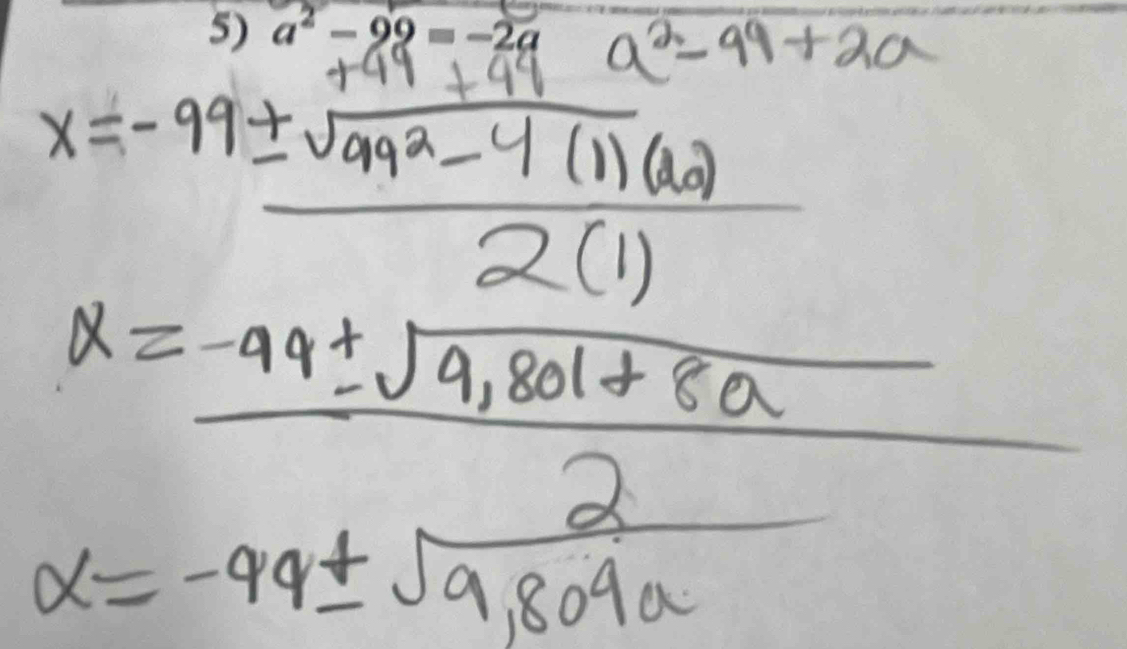 5) a² - 99 = -2a a² - 99 + 2a
+99 +99
x = -99 ± √99² - 4 (1) (2a)
2 (1)
x = -99 ± √9,801 + 8a
2
x = -99 ± √9,809a